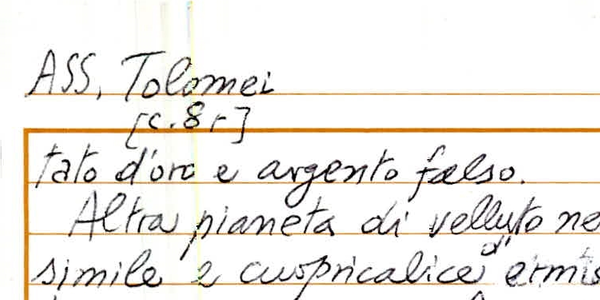 ASS. Tolomei
[c. 8 r]
tato d'oro e argento falso.
Altra pianeta di velluto ne
simile e cuopricalice d'ermis